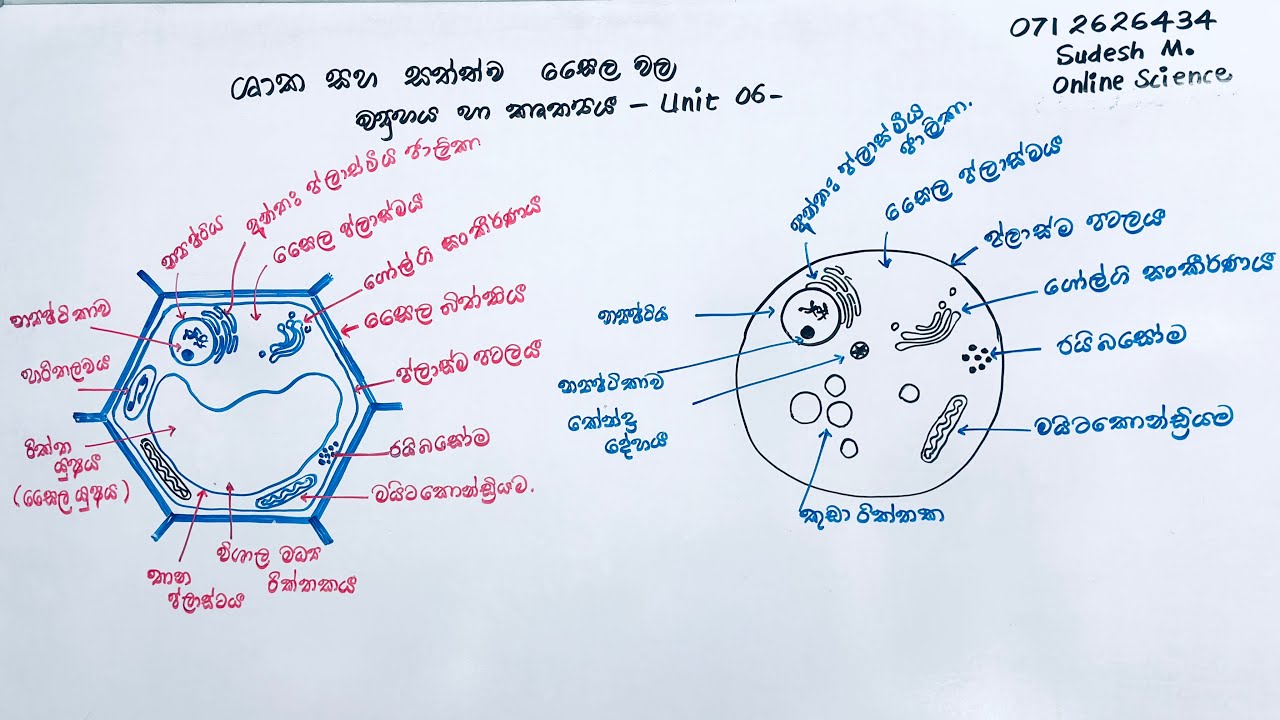 071 2626434
Sudesh M.
Online Science
ශාක සහ සත්ත්ව සෛල වල
ව්‍යුහය හා කෘත්‍යය - Unit 06-
න්‍යෂ්ටිය
අන්තඃ ප්ලාස්මීය ජාලිකා
සෛල ප්ලාස්මය
ගෝල්ගි සංකීර්ණය
සෛල බිත්තිය
ප්ලාස්ම පටලය
රයිබසෝම
මයිටකොන්ඩ්‍රියම.
විශාල මධ්‍ය
රික්තකය
තාන
ප්ලාස්ටය
රික්ත
යුෂය
(සෛල යුෂය)
හරිතලවය
න්‍යෂ්ටිකාව
අන්තඃ ප්ලාස්මීය
ජාලිකා.
සෛල ප්ලාස්මය
ප්ලාස්ම පටලය
ගෝල්ගි සංකීර්ණය
රයිබසෝම
මයිටකොන්ඩ්‍රියම
කුඩා රික්තක
කේන්ද්‍ර
දේහය
න්‍යෂ්ටිකාව
න්‍යෂ්ටිය